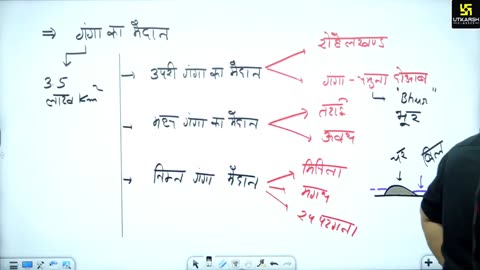 ⇒ गंगा का मैदान
3.5
लाख km²
→ उपरी गंगा का मैदान
रोहेलखण्ड
गंगा - यमुना दोआब
"Bhur"
भूर
→ मध्य गंगा का मैदान
तराई
अवध
→ निम्न गंगा मैदान
मिथिला
मगध
२५ परगना
चर
बिल
UTKARSH